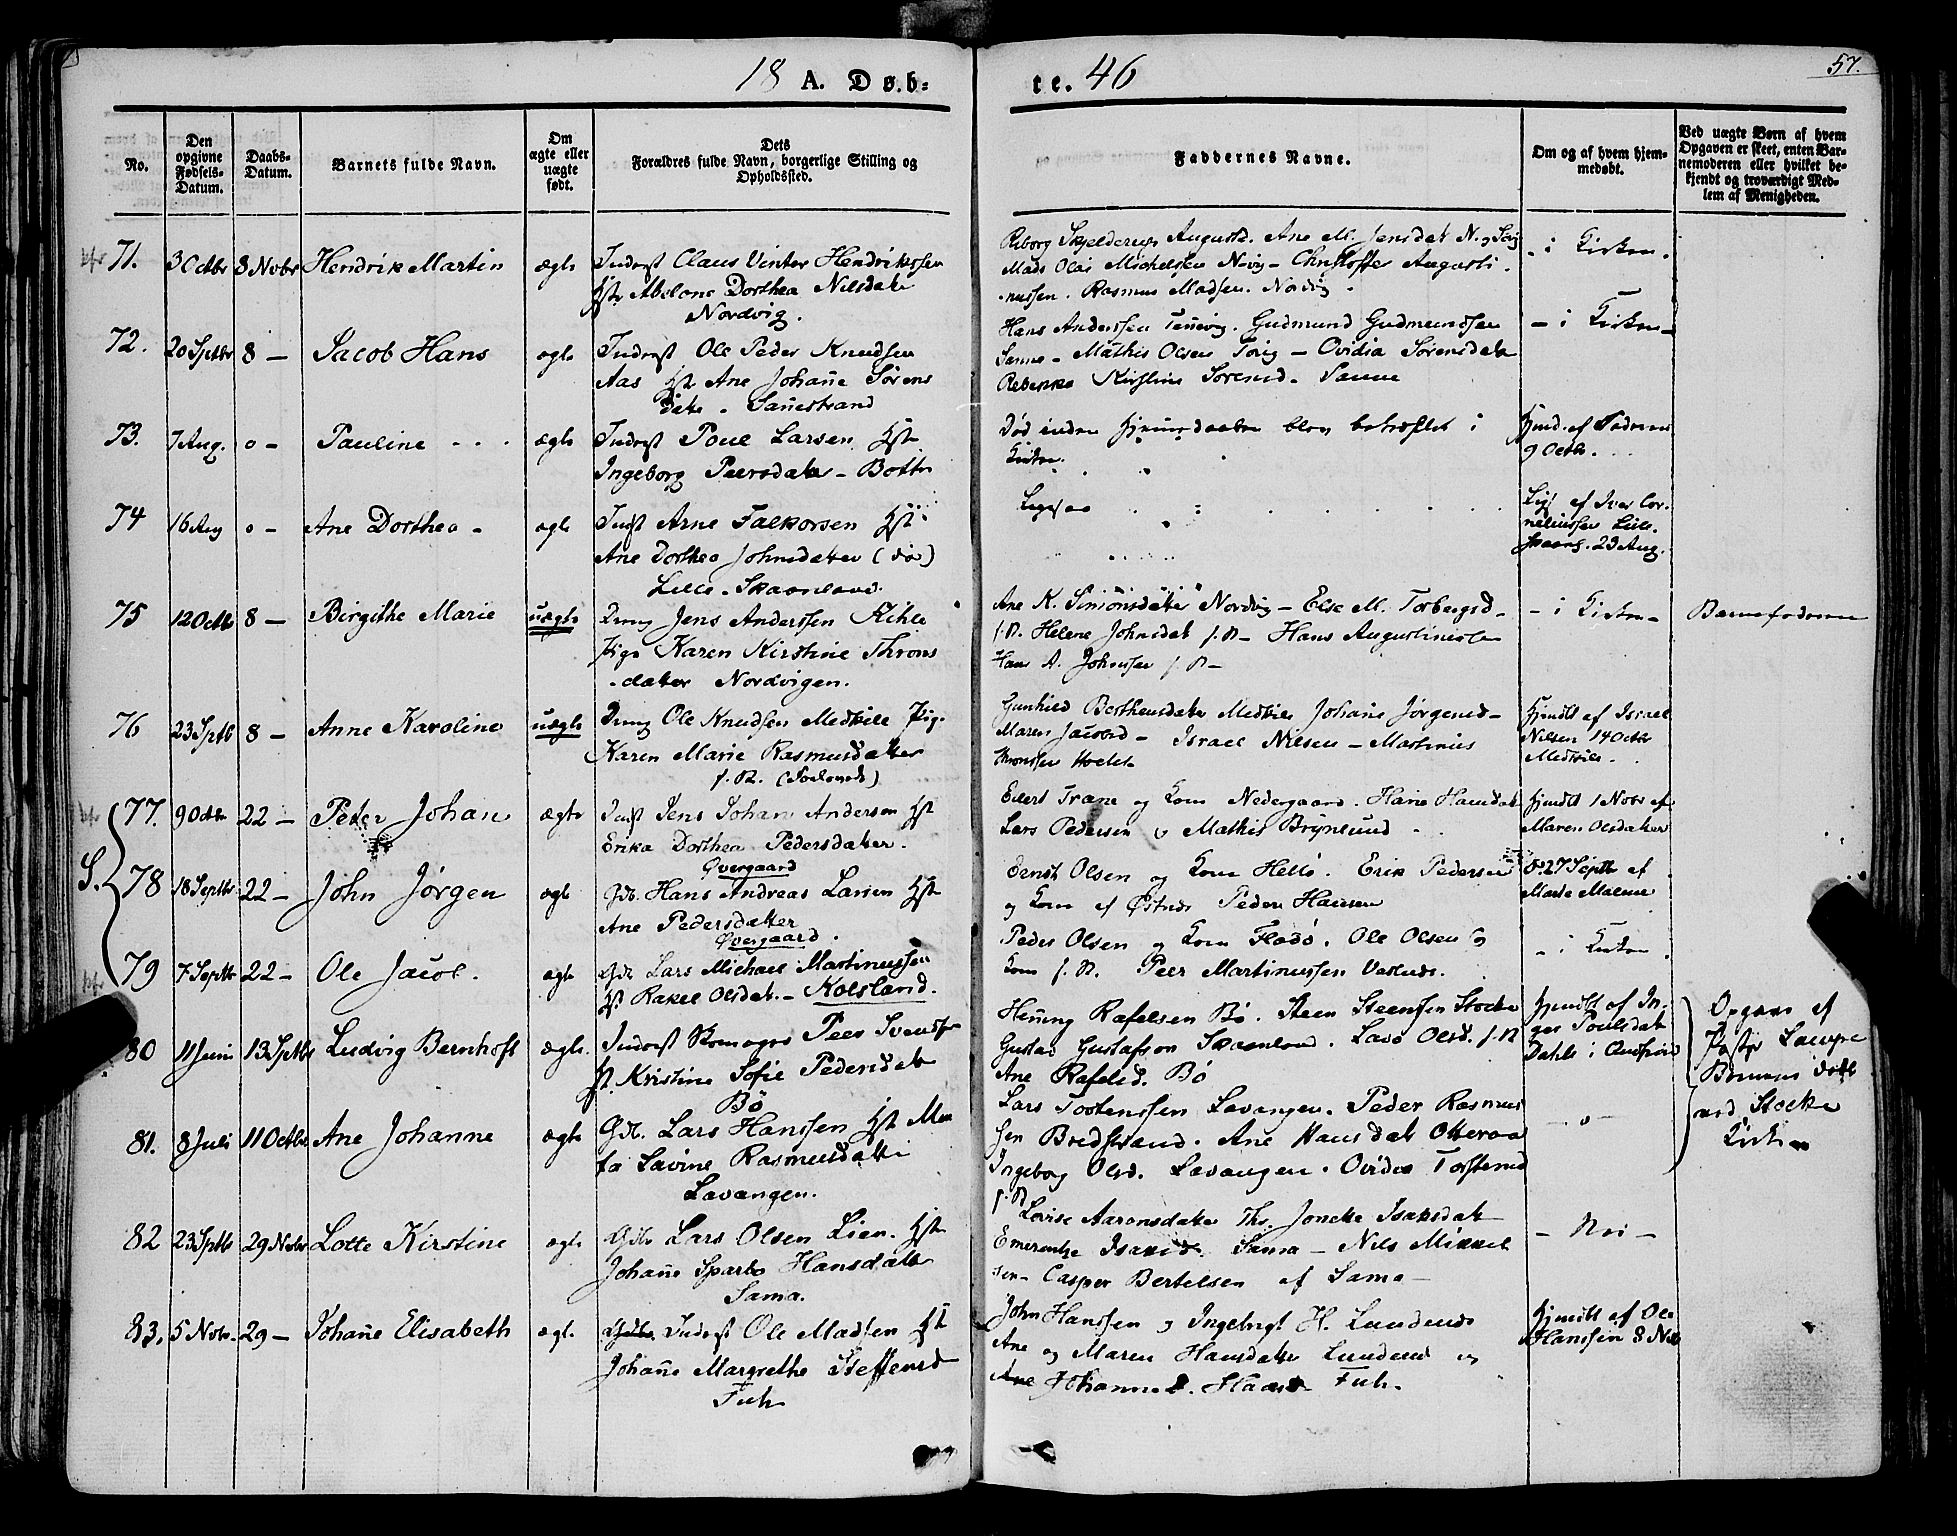 18 A. Døb:
te. 46
57.
No.
Den opgivne Fødsels-Datum.
Daabs-Datum.
Barnets fulde Navn.
Om ægte eller uægte født.
Dets Forældres fulde Navn, borgerlige Stilling og Opholdssted.
Faddernes Navne.
Om og af hvem hjemmedøbt.
Ved uægte Børn af hvem Opgaven er skeet, enten Barnemoderen eller hvilket bekjendt og troværdigt Medlem af Menigheden.
71. 3 Octbr 8 Novbr Hendrik Martin ægte Inderst Claus Vinter Hendriksen
Hst Abelone Dorthea Nilsdatt
Nordvig.
Augusti
nussen. Rasmus Madsen. Nordvig
- i Kirken.
72. 20 Septbr 8 - Jacob Hans ægte Inderst Ole Peder Knudsen
Aas Hst Ane Johan̄e Sørens
datt. San̄estrand
Hans Anderssen Gudmund Gudmundsen
Mathis Olsen - Ovidia Sørensdatt
Rebekka Kirstine Sørensd. San̄e
- i Kirken -
73. 7 Aug. o - Pauline ægte Inderst Poul Larsen Hst
Ingeborg Peersdatt - Botten
Død inden Hjemmedaaben blev bekræftet i
Kirken.
Hjmd. af Faderen
9 Octbr.
74 16 Aug o - Ane Dorthea - ægte Indst Arne Falkorsen Hst
Ane Dorthea Johnsdatter (død)
Lille Skaanland.
Ligesaa
Lige af Iver Cor-
neliussen Lille
Skaanl. 23 Aug.
75 12 Octbr 8 - Birgithe Marie uægte Ung Jens Anderssen Kihle
Pige Karen Kirstine Throns
datter Nordvigen.
Ane K. Simonsdatter Nordvig - Else M. Torbergsd -
f. St. Helene Johnsdat f. St - Hans Augustinussen
Hans A. Johnssen f. St -
- i Kirken -
Barnefaderen
76 23 Septb 8 - Anne Karoline uægte Ung Ole Knudsen Medkile Pig.
Karen Marie Rasmusdatter
f. St.
Gunhild Bertheusdatter Medkile Johan̄e Jørgensd -
Maren Jacobsd - Israel Nilsen - Martinus
Thronssen
Hjmdbt af Israel
Nilsen 14 Octbr
Medkile.
77. 9 Octbr 22 - Peder Johan ægte Indst Jens Johan Andersen Hst
Erika Dorthea Pedersdatter.
Overgaard
Eilert Trane og Kone Nedergaard. Han̄e Hansdatt
Lars Pedersen og Mathis Brynlund
Hjmdbt 1 Novbr af
Maren Olsdatter
S.
78 18 Septbr 22 - John Jørgen ægte Gdb. Hans Andreas Larsen Hst
Ane Pedersdatter
Overgaard.
Ernst Olsen og Kone Hellø. Erik Pedersen
og Kone af Østnes Peder Hansen
27 Septb af
79 7 Septbr 22 - Ole Jacob. ægte Gdb Lars Michael Martinussen
Hst Rakel Olsdat. - Kolsland.
Peder Olsen og Kone Fladø. Ole Olsen og
Kone f. St. Peer Martinussen
- i Kirken
80 11 Juni 13 Septbr Ludvig Bernhoft ægte. Inderst Skomager Peer Svendsen
Hst Kristine Sofie Pedersdatt
Bø
Hen̄ing Rafelsen Bø. Steen Steensen Stocke
Gustav Gustafson Skaanland. Olsd. f. St
Ane Rafelsd. Bø
Hjemdbt af In-
ger Poulsdat
Dahle i
Opgave af
Pastor
Barnene døbt
ved Stocke
Kirken
81. 8 Juli 11 Octbr Ane Johanne ægte Gdb. Lars Hanssen Hst Mar
ta Lavine Rasmusdatter
Lavangen.
Lars Tostenssen Lavangen. Peder Rasmus
sen Bredstrand. Ane Hansdatt Otteraa
Ingeborg Olsd. Lavangen. Ovidia Torstensd
f. St
- o -
82 23 Septb 29 Novbr Lotte Kirstine ægte Gdb Lars Olsen Lien. Hst
Johan̄e Sparbo Hansdatt
Sama.
Lovise Aaronsdatter Joneke Isaksdat
Emerentse Isaksd. Sama - Nils Mikkel
sen - Casper Bertelsen af Sama -
- Nei -
83. 5 Novbr. 29 - Johan̄e Elisabeth ægt. Inderst Ole Madsen Hst
Johan̄e Margrethe Steffensd
John Hanssen og Ingebrigt H. Lundenes
Ane og Maren Hansdatter Lundenes og
Johanne
Hjmdbt af Ole
Hanssen 8 Nov